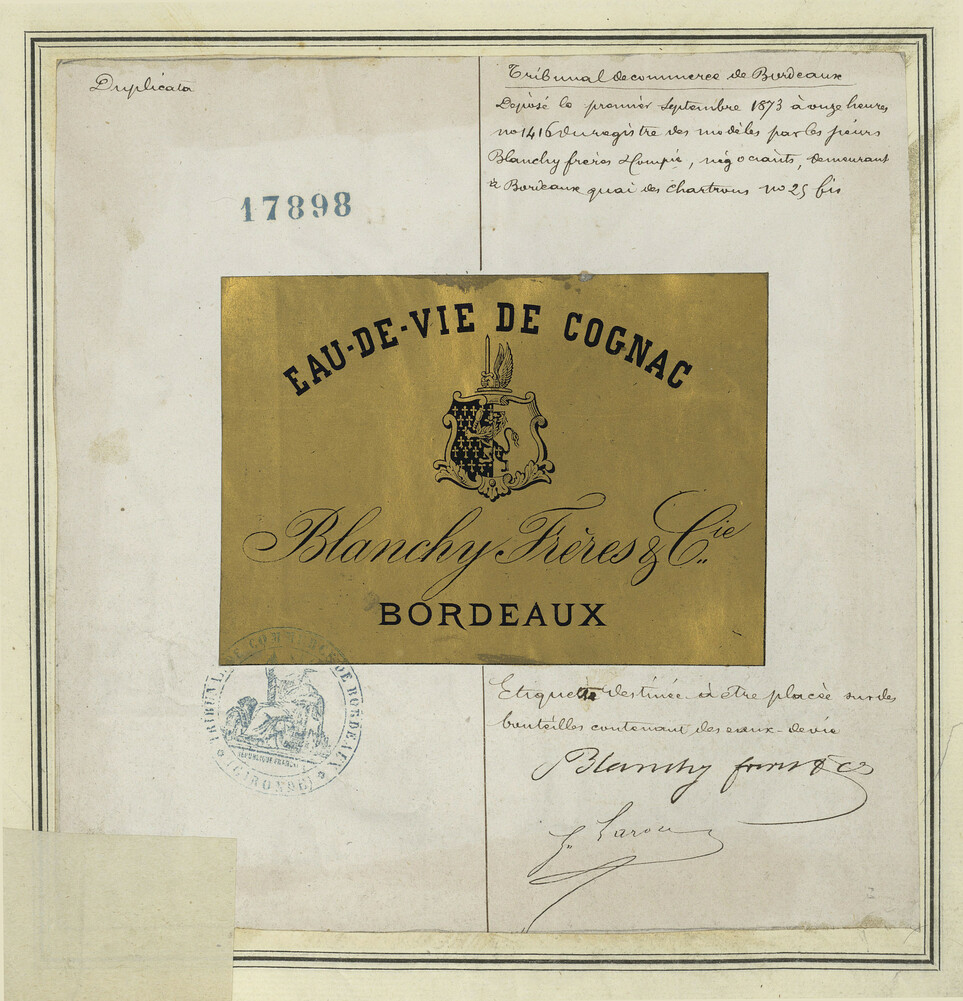 Duplicata
Tribunal de commerce de Bordeaux
Déposé le premier Septembre 1873 à onze heures
no 1416 du registre des modèles par les sieurs
Blanchy frères & Compie, négociants, demeurant
à Bordeaux quai des Chartrons no 25 bis
17898
EAU-DE-VIE DE COGNAC
Blanchy Frères & Cie
BORDEAUX
TRIBUNAL DE COMMERCE DE BORDEAUX
REPUBLIQUE FRANÇAISE
(GIRONDE)
Etiquette destinée à être placée sur des
bouteilles contenant des eaux-de-vie
Blanchy frères & Ce